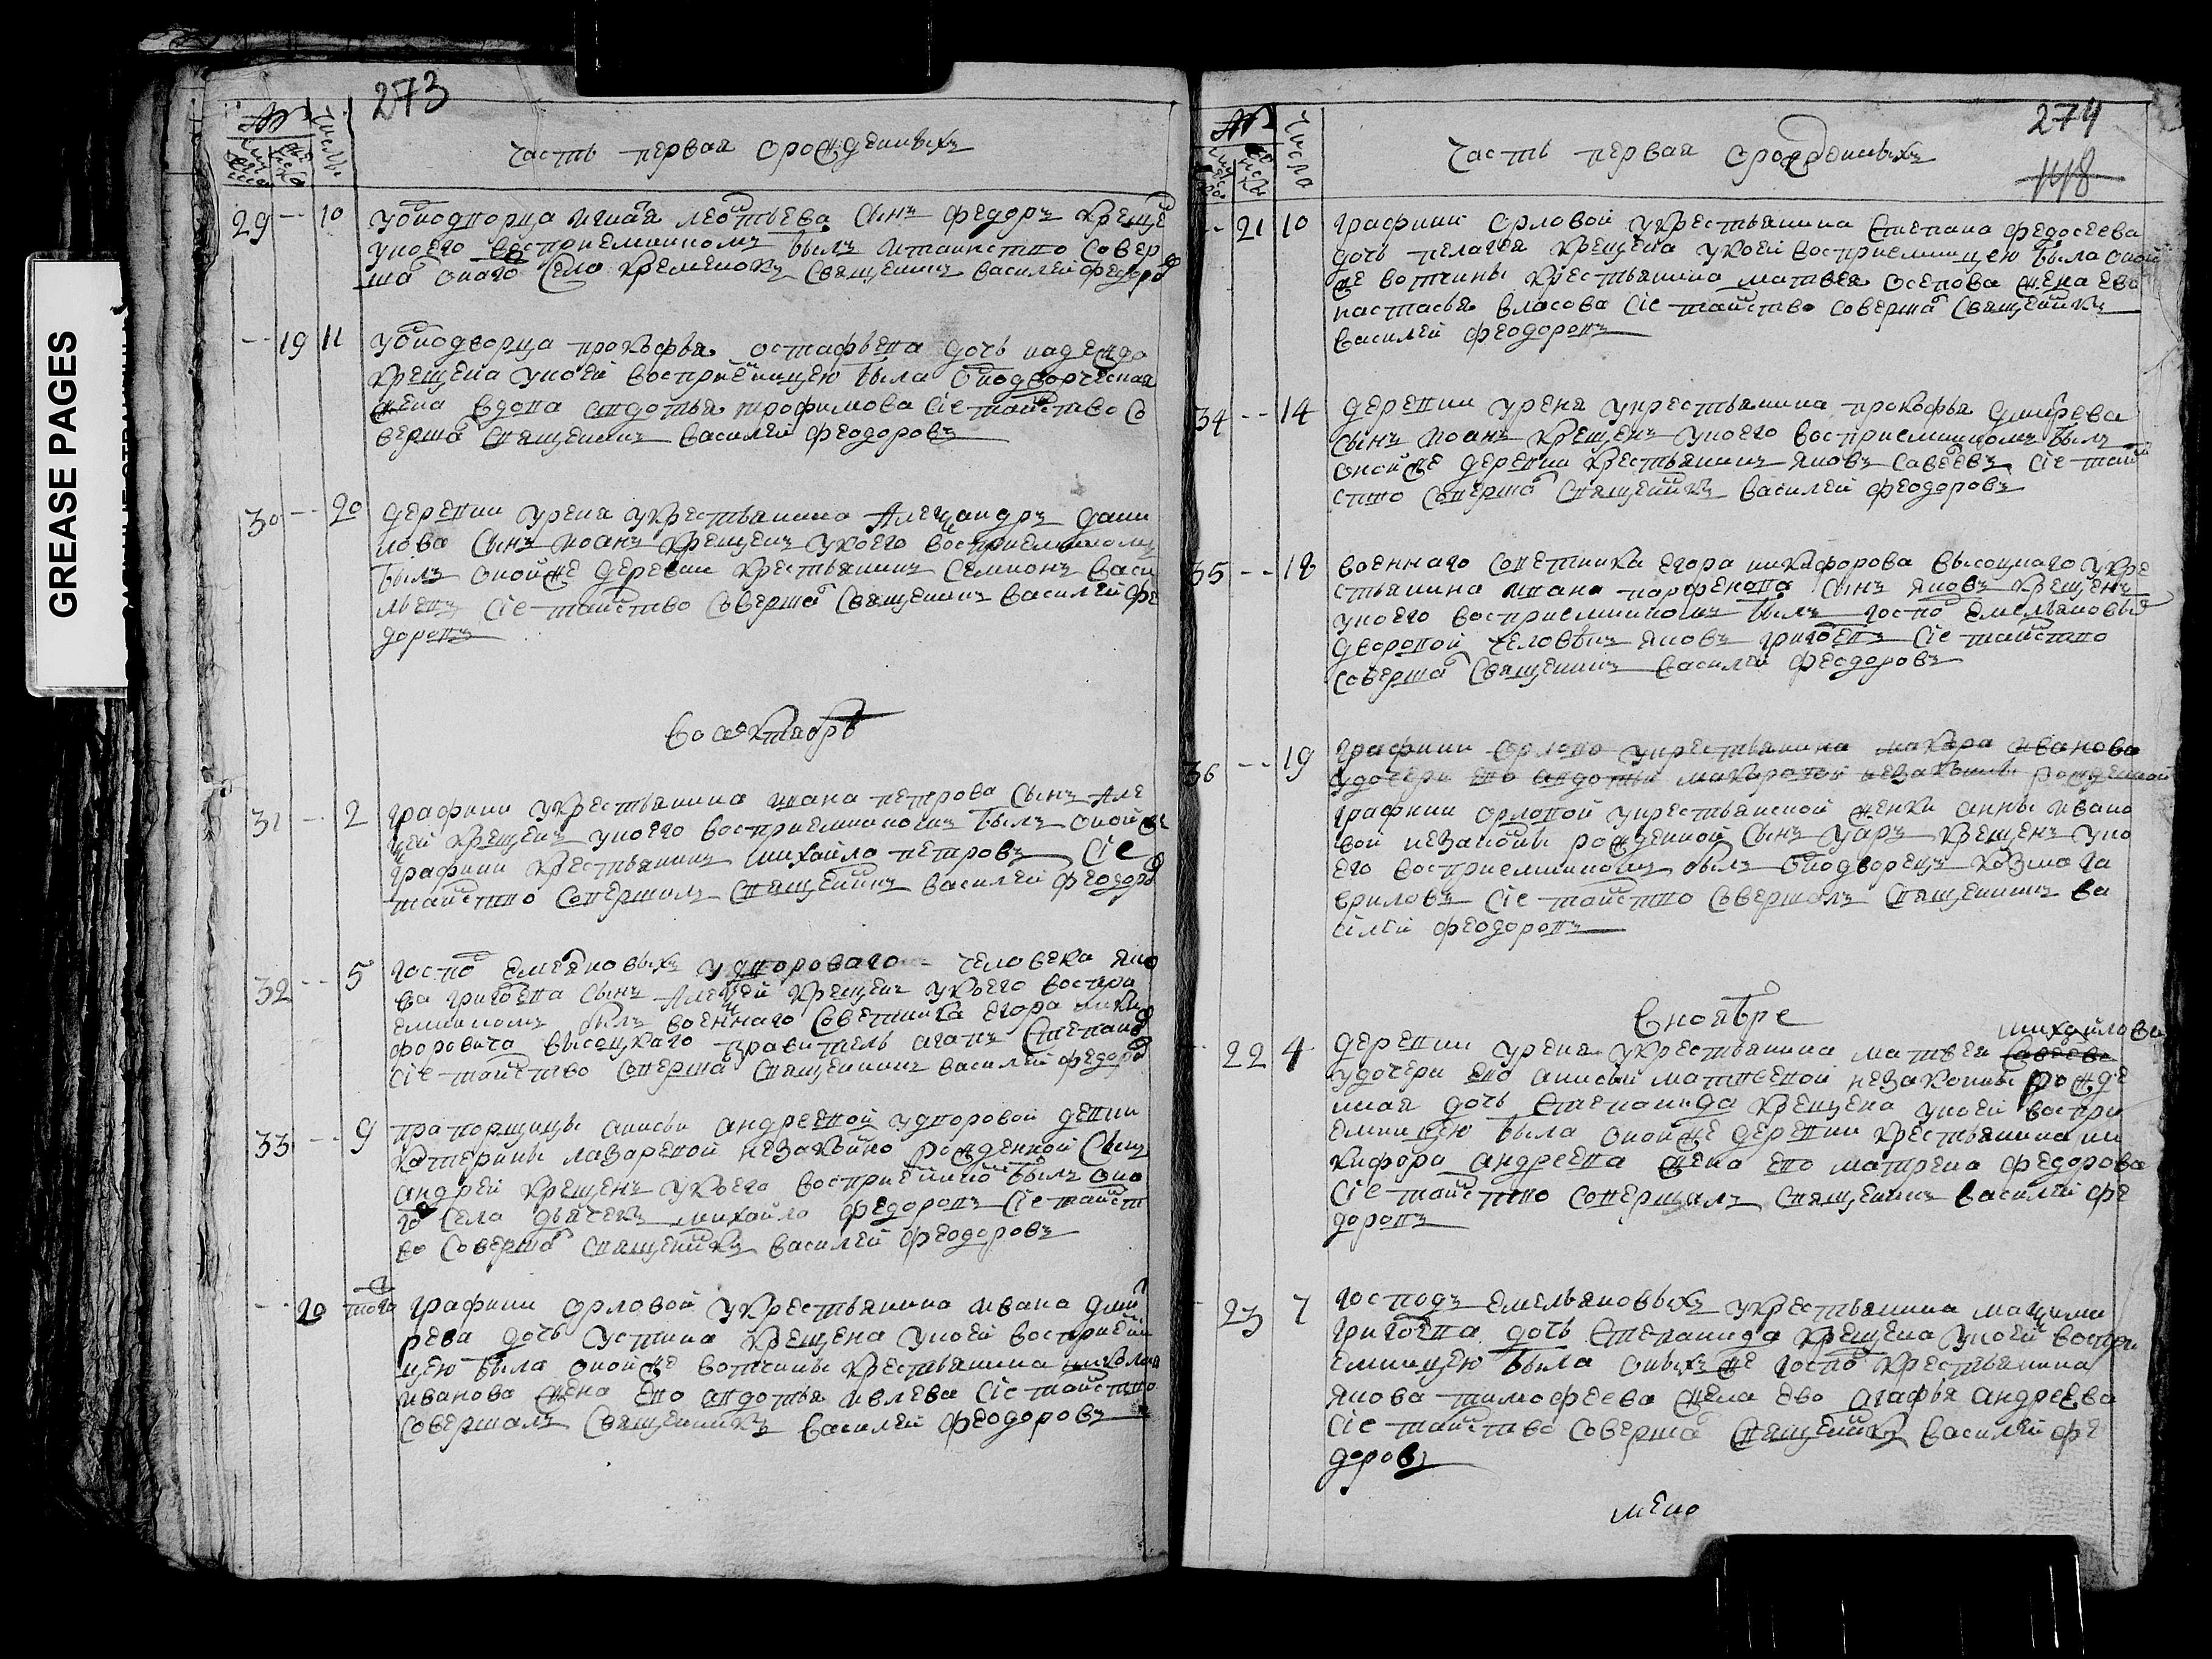 GREASE PAGES
273
Числа
часть первая орожденныхъ
29 -- 10 уоднодворца игната леонтьева сынъ федоръ крещенъ
укоего восприемникомъ былъ итаинство совер
шалъ оного села кременокъ священникъ василей федоровъ
-- 19 11 уоднодворца прокофья остафьева дочь надежда
крещена укоей восприемницею была однодворческая
жена вдова авдотья трофимова сіе таинство со
вершалъ священникъ василей феодоровъ
30 -- 20 деревни урена укрестьянина Алеѯандръ дани
лова сынъ иоанъ крещенъ укоего восприемникомъ
былъ оной же деревни крестьянинъ семионъ васи
льевъ сіе таинство совершалъ священникъ василей фе
доровъ
во октябрѣ
31 -- 2 графини укрестьянина ивана петрова сынъ Але
ѯей крещенъ укоего восприемникомъ былъ оной же
графини крестьянинъ михайла петровъ сіе
таинство совершилъ священникъ василей феодоровъ
32 -- 5 господъ емельяновыхъ удвороваго человека яко
ва григорьева сынъ Алеѯей крещенъ укоего воспри
емникомъ былъ военнаго советника егора ники
форовича высоцкаго правитель агапъ степановъ
сіе таинство совершалъ священникъ василей федоровъ
33 -- 9 прапорщицы анисьи андреевой удворовой девки
катерины лазаревой незаконно рожденной сынъ
андрей крещенъ укоего восприемникомъ былъ оно
го села дьячекъ михайло федоровъ сіе таинст
во совершалъ священникъ василей феодоровъ
-- 20 того графини орловой укрестьянина ивана дмит
рева дочь устина крещена укоей восприемни
цею была оной же вотчины крестьянина николая
иванова жена ево авдотья ивлева сіе таинство
совершалъ священникъ василей феодоровъ
274
148
Числа
часть первая орожденныхъ
-- 21 10 графини орловой укрестьянина степана федосеева
дочь пелагея крещена укоей восприемницею была оной
же вотчины крестьянина матвея осепова жена ево
настасья власова сіе таинство совершалъ священникъ
василей феодоровъ
34 -- 14 деревни урена укрестьянина прокофья дмитрева
сынъ иоанъ крещенъ укоего восприемникомъ былъ
оной же деревни крестьянинъ яковъ савеевъ сіе таин
ство совершалъ священникъ василей феодоровъ
35 -- 18 военнаго советника егора никифорова высоцкаго укре
стьянина ивана парфенова сынъ яковъ крещенъ
укоего восприемникомъ былъ господъ емельяновыхъ
дворовой человѣкъ яковъ григорьевъ сіе таинство
совершалъ священникъ василей феодоровъ
36 -- 19 графини орлово укрестьянина макара иванова
удочери ево авдотьи макаровой незаконно рожденной
графини орловой укрестьянской женки анны ивано
вой незаконны рожденной сынъ уаръ крещенъ уко
его восприемникомъ былъ однодворецъ козма га
вриловъ сіе таинство совершалъ священникъ ва
силей феодоровъ
в ноябре
22 4 деревни урена укрестьянина матвея савеева михайлова
удочери ево анисьи матвеевой незаконны рожде
нная дочь степанида крещена укоей воспри
емницею была оной же деревни крестьянина ни
кифора андреева жена ево матрена федорова
сіе таинство совершалъ священникъ василей фе
доровъ
23 7 господъ емельяновыхъ укрестьянина маѯима
григорьева дочь степанида крещена укоей воспри
емницею была оныхъ же господъ крестьянина
якова тимофеева жена ево агафья андреева
сіе таинство совершалъ священникъ василей фе
доровъ